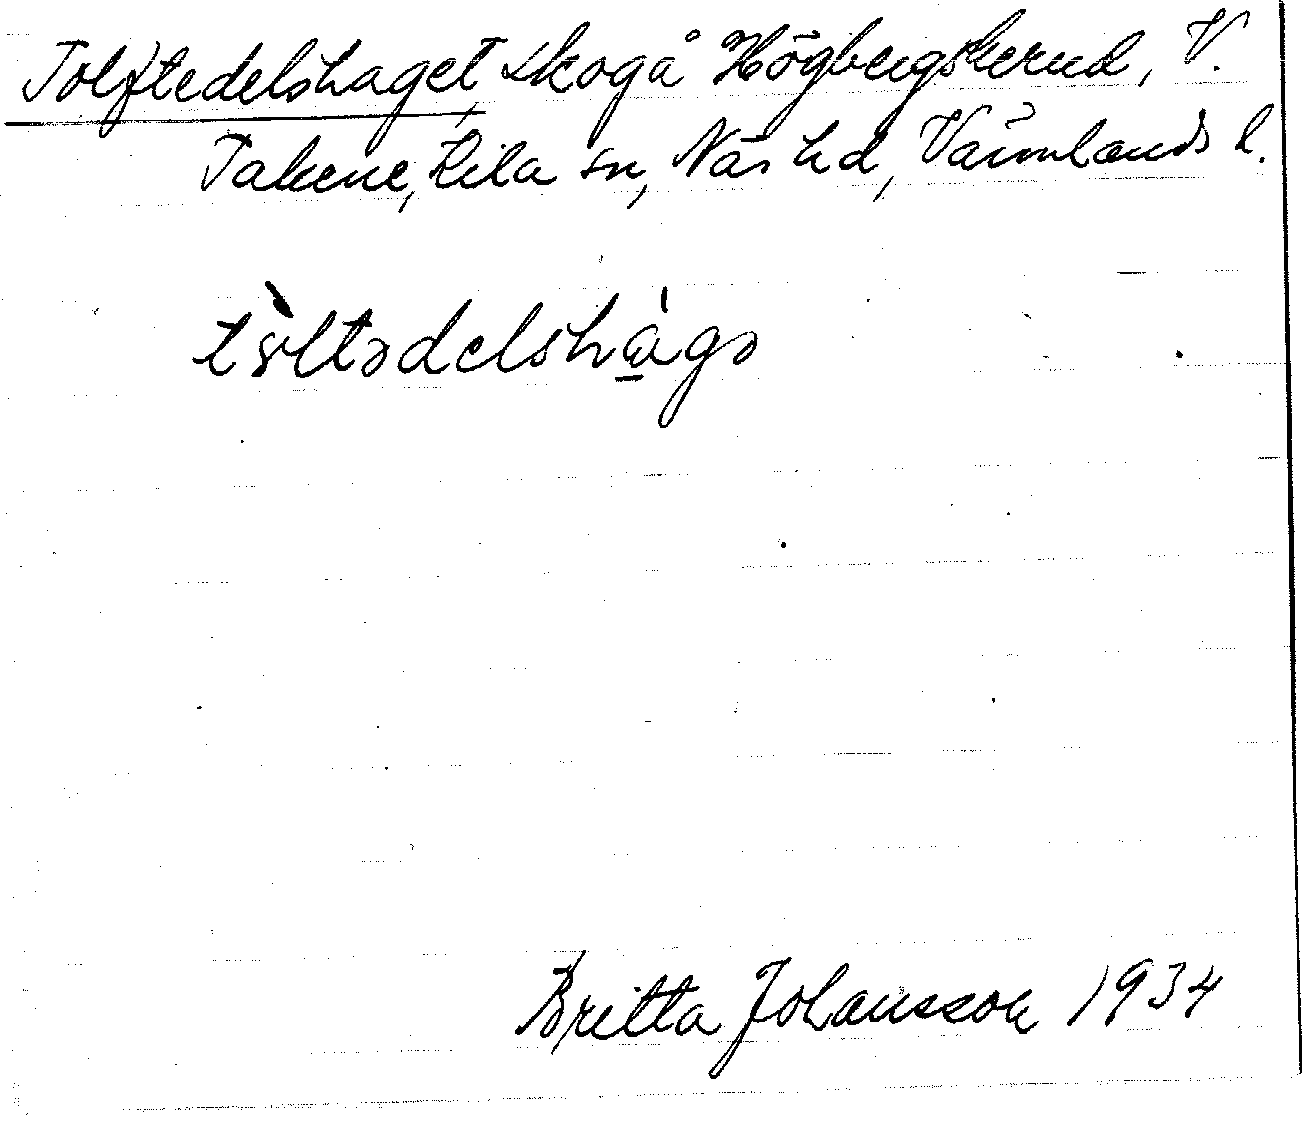 Tolftedelshaget, skog å Högbergskerud, V.
Takene, Kila sn, Näs hd, Värmlands l.
tɞ̀ltədelshàgə
Britta Johansson 1934